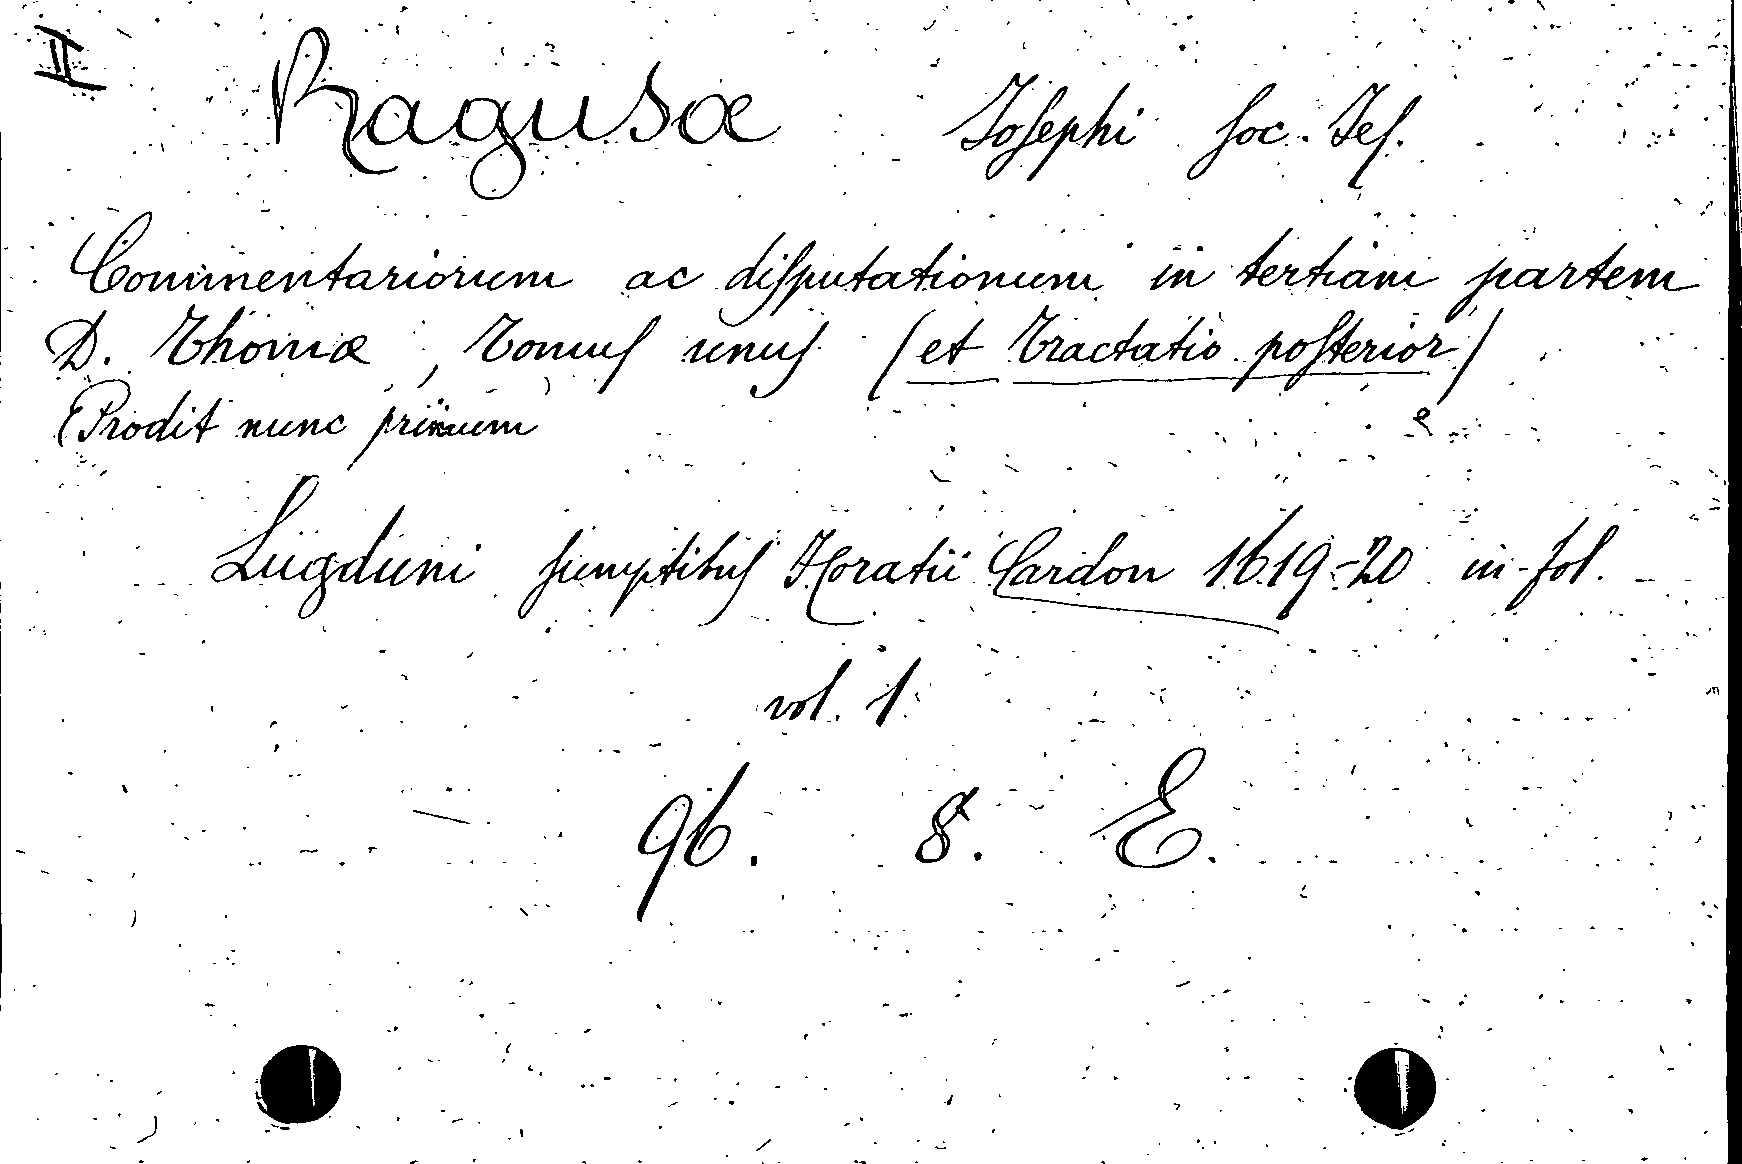 II
Ragusæ Joſephi ſoc. Jeſ.
Commentariorum ac diſputationum in tertiam partem
D. Thomæ, Tomuſ unuſ (et Tractatio poſterior)
(Prodit nunc primum
Lugduni ſumptibuſ Horatii Cardon 1619-20 in-fol.
vol. 1.
96. 8. E.